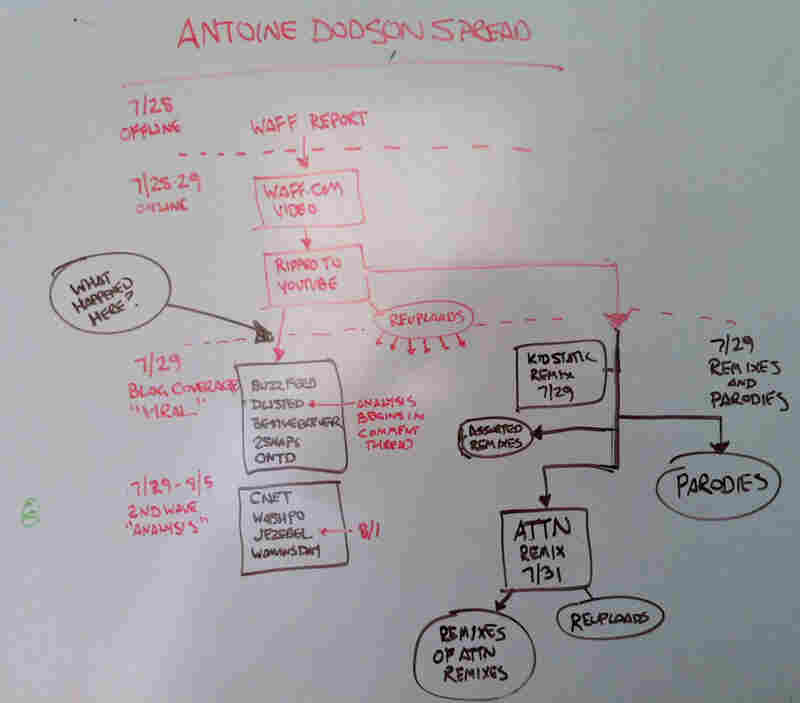 ANTOINE DODSON SPREAD
7/28
OFFLINE
WAFF REPORT
7/28-29
ONLINE
WAFF.COM
VIDEO
RIPPED TO
YOUTUBE
WHAT
HAPPENED
HERE?
REUPLOADS
7/29
BLOG COVERAGE
"VIRAL"
BUZZFEED
DLISTED
BESTWEEKEVER
2SNAPS
ONTD
ANALYSIS
BEGINS IN
COMMENT
THREAD
KIDSTATIC
REMIX
7/29
7/29
REMIXES
AND
PARODIES
ASSORTED
REMIXES
PARODIES
7/29-8/5
2ND WAVE
"ANALYSIS"
CNET
WASHPO
JEZEBEL
WOMANSDAY
8/1
ATTN
REMIX
7/31
REMIXES
OF ATTN
REMIXES
REUPLOADS